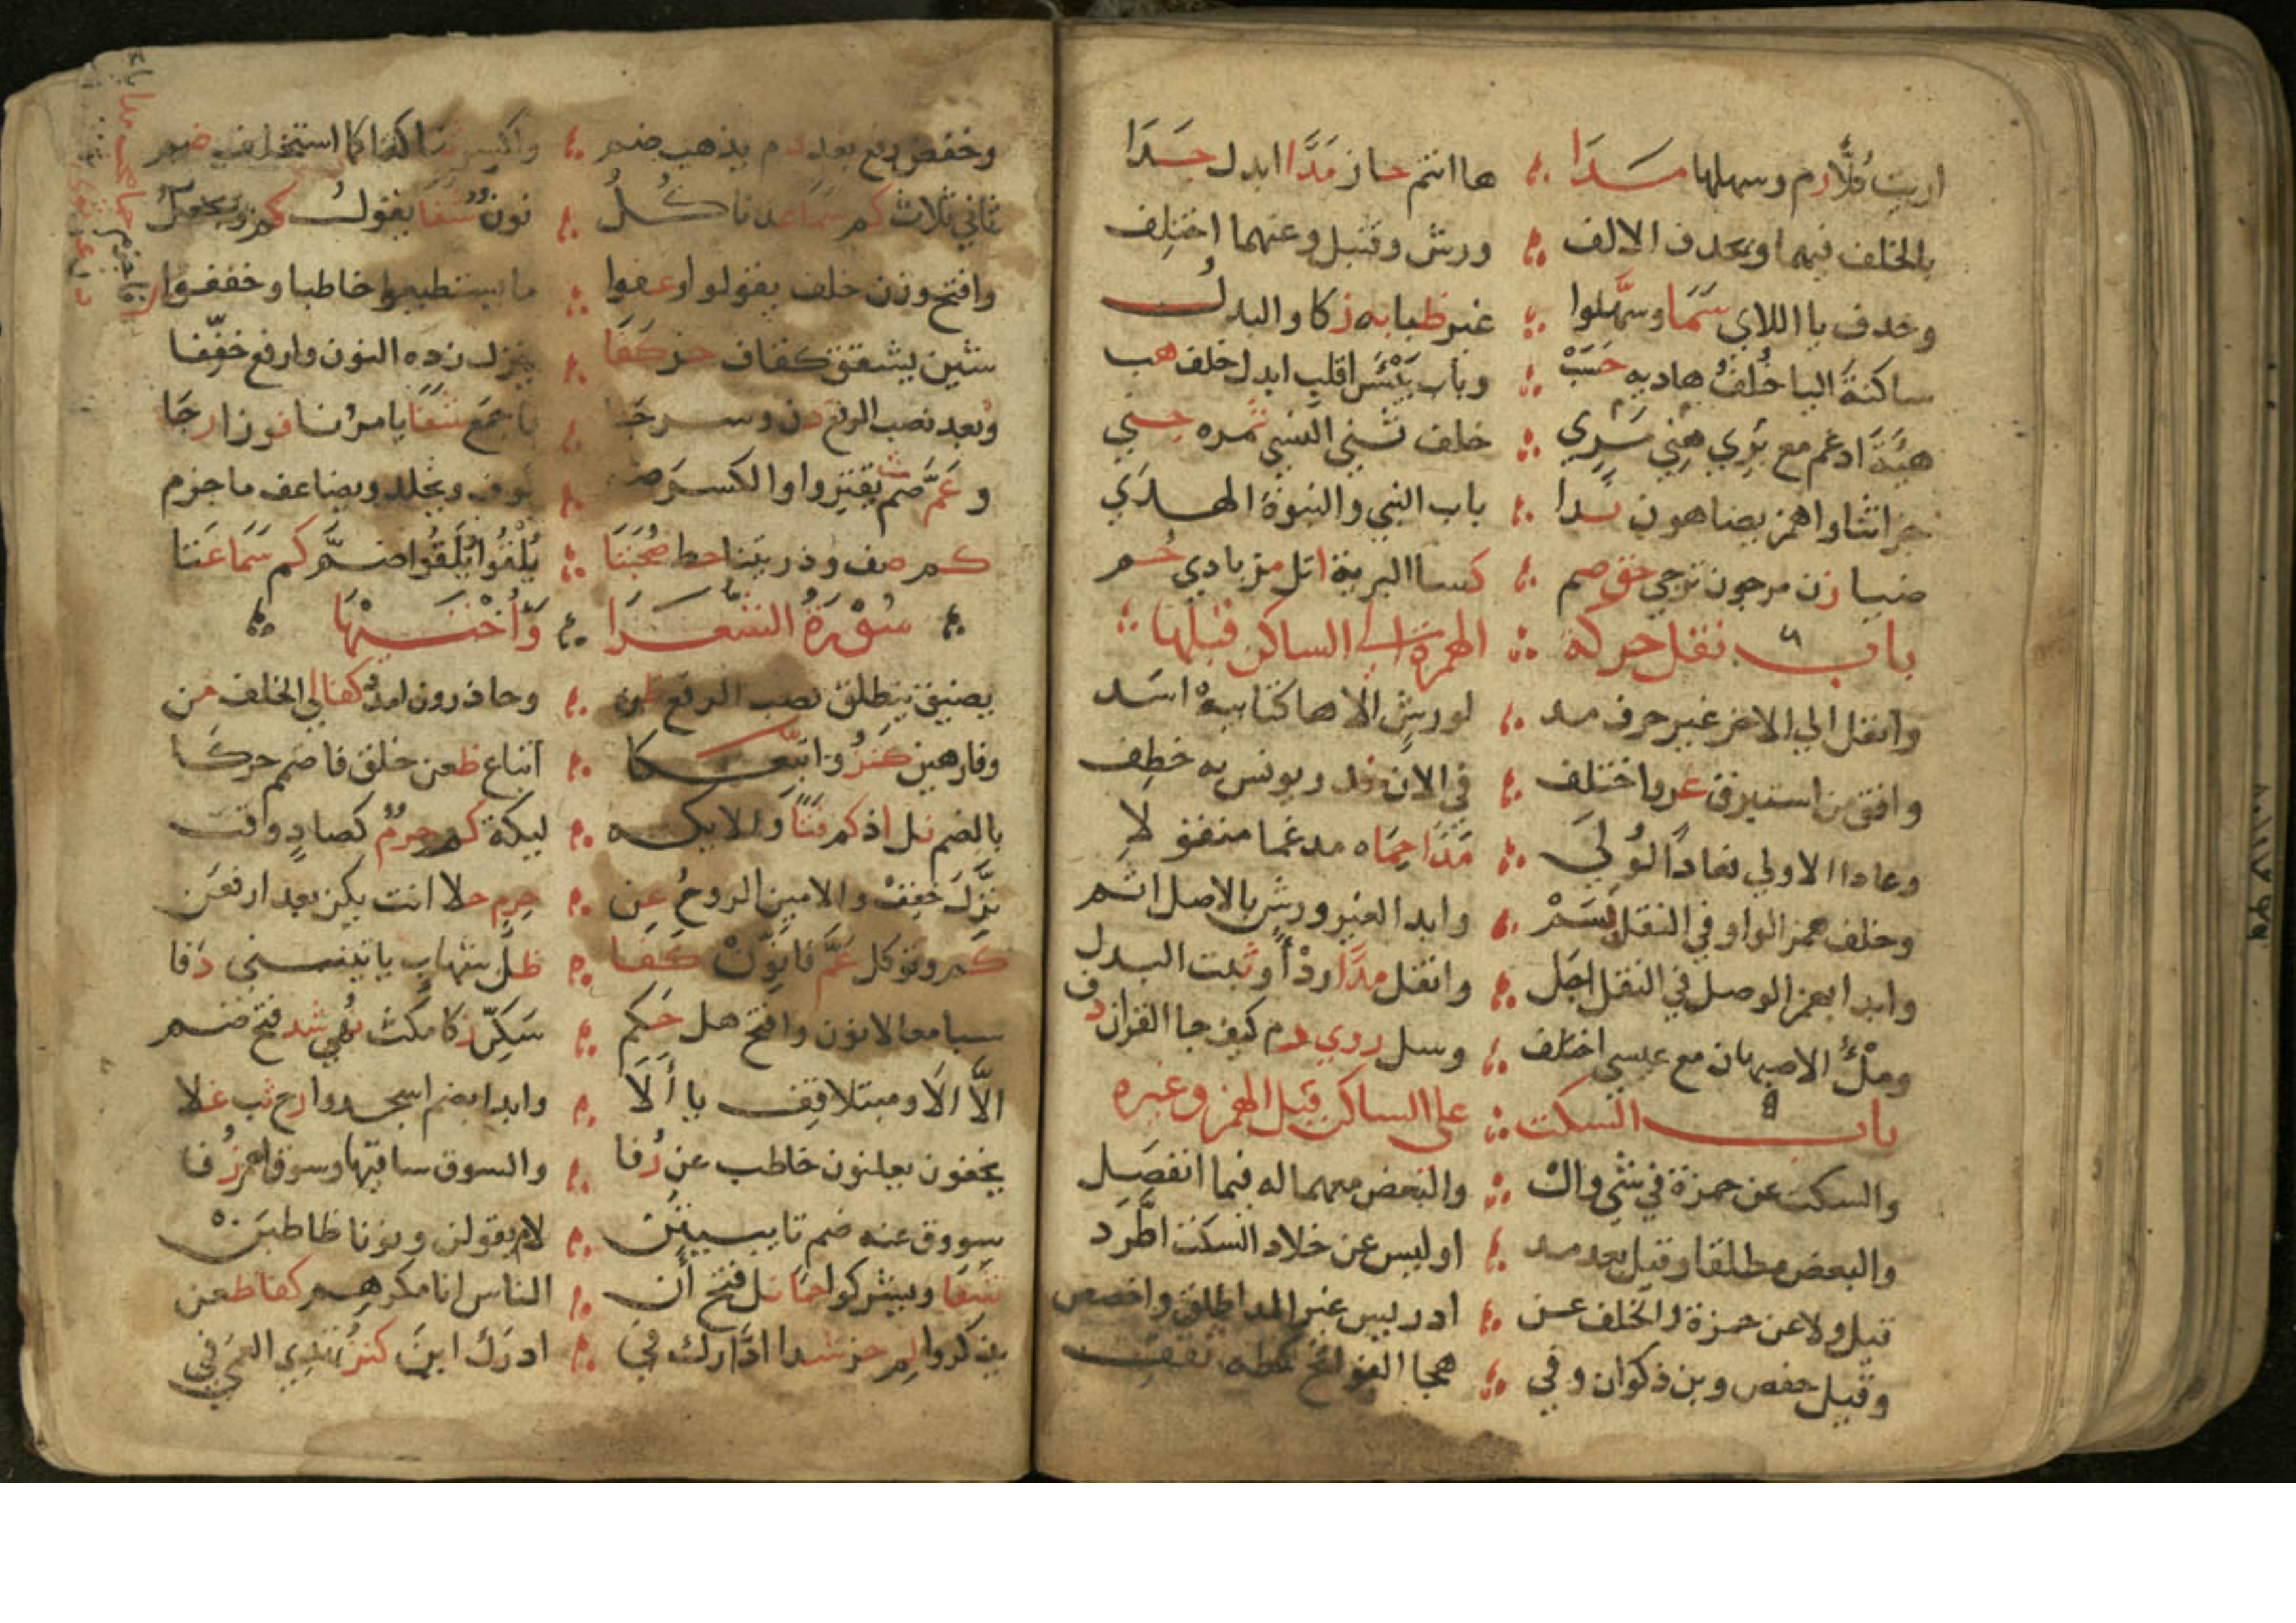 اريت كلا رم وسهلها مدا ها انتم حاز مدا ابدل جدا
بالخلف فيهما ويحذف الالف ورش وقنبل وعنهما اختلف
وحذف يا اللاي سما وسهلوا غير ظبا به زكا والبدل
ساكنة اليا خلف هاديه حسب وباب ييئس اقلب ابدل خلف هب
هيئة ادغم مع بري مري هني خلف ثني النسي ثمره جني
جزا ثنا واهمز يضاهون ندا باب النبي والنبوة الهدي
ضيا زن مرجون ترجي حق صم كسا البرية اتل مز بادي حم
باب نقل حركة الهمزة الي الساكن قبلها
وانقل الي الاخر غير حرف مد لورش الا ها كتابيه اسد
وافق من استبرق غر واختلف في الان خذ ويونس به خطف
وعادا الاولي فعادا لولي مدا حماه مدغما منقولا
وخلف همز الواو في النقل بسم وابدا لغير ورش بالاصل اتم
وابدا بهمز الوصل في النقل اجل وانقل مدا ردا وثبت البدل
وملء الاصبهان مع عيسي اختلف وسل روي دم كيف جا القران دف
باب السكت علي الساكن قبل الهمز وغيره
والسكت عن حمزة في شي وال والبعض معهما له فيما انفصل
والبعض مطلقا وقيل بعد مد او ليس عن خلاد السكت اطرد
قيل ولا عن حمزة والخلف عن ادريس غير المد اطلق واخصص
وقيل حفص وبن ذكوان وفي هجا الفواتح كطه ثقف
وخفض رفع بعد دم يذهب ضم واكسر ثنا كذا كما استخلف صم
ثاني ثلاث كم سما عد ناكل نون شفا يقول كم ويجعل
وافتح وزن خلف يقولوا وعفوا ما يستطيعوا خاطبا وخففوا
شين يشقق كقاف حز كفا ينزل زده النون وارفع خففا
وبعد نصب الرفع دن وسرجا فاجمع شفا يامرنا فوزا رجا
وعم ضم يقتروا والكسر ضم كوف ويخلد ويضاعف ما جزم
كم صف وذريتنا حط صحبتا يلقوا يلقوا ضم كم سما عتا
سورة الشعرا واختيها
يضيق ينطلق نصب الرفع ظن وحاذرون امدد كفا لي الخلف من
وفارهين كنز واتبعكا اتباع ظعن خلق فاضمم حركا
بالضم نل اذ كم فتا والايكه ليكة كم حرم كصاد وقت
نزل خفف والامين الروح عن حرم حلا انت يكن بعد ارفعن
كم وتوكل عم فا نون كفا ظل شهاب ياتينني دفا
سبا معا لا نون وافتح هل حكم سكن زكا مكث نهي شد فتح ضم
الا الا ومبتلا قف يا الا وابدا بضم اسجدوا رح ثب غلا
يخفون يعلنون خاطب عن رفا والسوق ساقيها وسوق اهمز زفا
سووق عنه ضم تا يبيتن لام يقولن ونونا خاطبن
شفا ويشركوا حما نل فتح ان الناس انا مكرهم كفا ظعن
يذكروا لم حز شدا ادارك في ادرك اين كنز تهدي العمي في